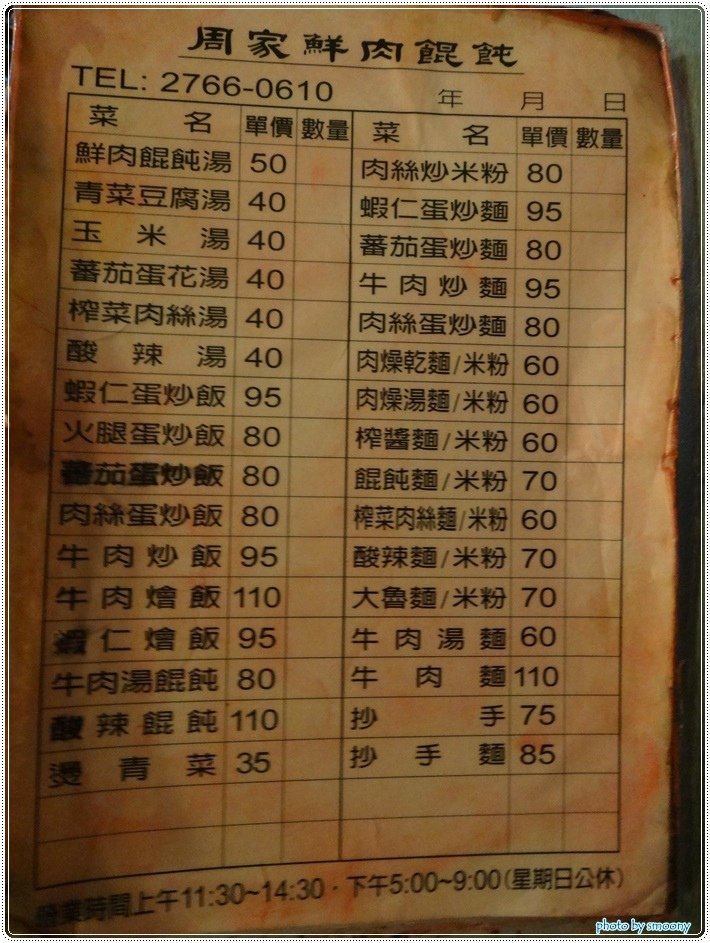 周家鮮肉餛飩
TEL: 2766-0610
年 月 日
菜名 單價 數量 菜名 單價 數量
鮮肉餛飩湯 50 肉絲炒米粉 80
青菜豆腐湯 40 蝦仁蛋炒麵 95
玉米湯 40 蕃茄蛋炒麵 80
蕃茄蛋花湯 40 牛肉炒麵 95
榨菜肉絲湯 40 肉絲蛋炒麵 80
酸辣湯 40 肉燥乾麵/米粉 60
蝦仁蛋炒飯 95 肉燥湯麵/米粉 60
火腿蛋炒飯 80 榨醬麵/米粉 60
蕃茄蛋炒飯 80 餛飩麵/米粉 70
肉絲蛋炒飯 80 榨菜肉絲麵/米粉 60
牛肉炒飯 95 酸辣麵/米粉 70
牛肉燴飯 110 大魯麵/米粉 70
蝦仁燴飯 95 牛肉湯麵 60
牛肉湯餛飩 80 牛肉麵 110
酸辣餛飩 110 抄手 75
燙青菜 35 抄手麵 85
營業時間上午11:30~14:30．下午5:00~9:00(星期日公休)
photo by smoony